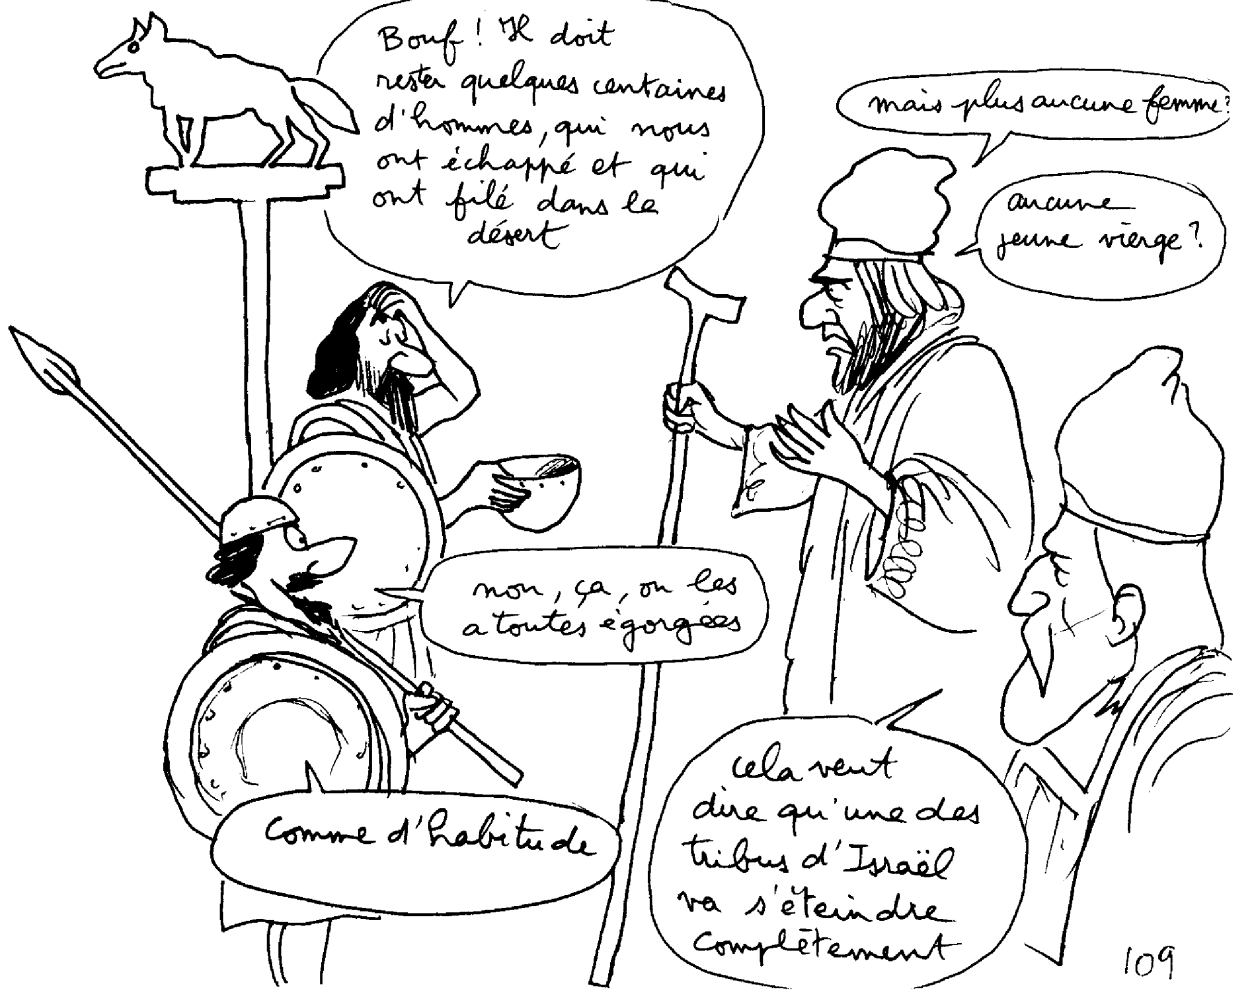 Bouf ! Il doit
rester quelques centaines
d'hommes, qui nous
ont échappé et qui
ont filé dans le
désert
mais plus aucune femme?
aucune
jeune vierge?
non, ça, on les
a toutes égorgées
comme d'habitude
cela veut
dire qu'une des
tribus d'Israël
va s'éteindre
complètement
109